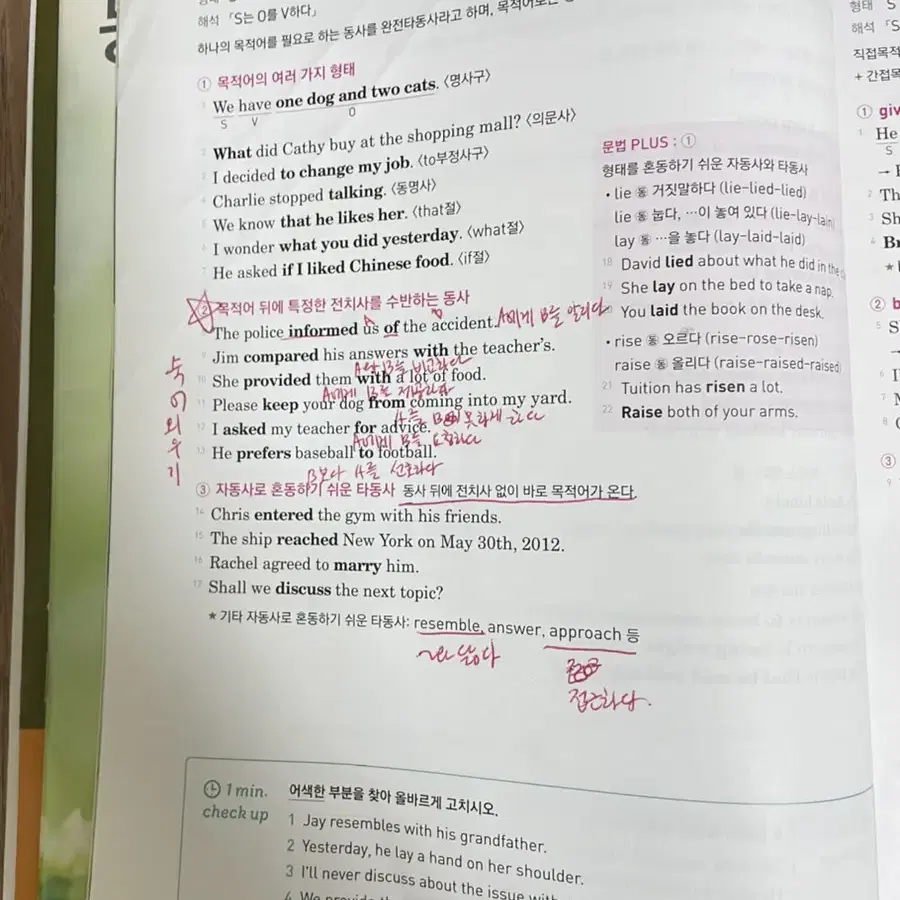 해석 「S는 O를 V하다」
하나의 목적어를 필요로 하는 동사를 완전타동사라고 하며,
① 목적어의 여러 가지 형태
1 We have one dog and two cats. <명사구>
S V O
2 What did Cathy buy at the shopping mall? <의문사>
3 I decided to change my job. <to부정사구>
4 Charlie stopped talking. <동명사>
5 We know that he likes her. <that절>
6 I wonder what you did yesterday. <what절>
7 He asked if I liked Chinese food. <if절>
② 목적어 뒤에 특정한 전치사를 수반하는 동사
The police informed us of the accident. A에게 B를 알리다
9 Jim compared his answers with the teacher's.
A와 B를 비교하다
10 She provided them with a lot of food.
A에게 B를 제공하다
11 Please keep your dog from coming into my yard.
A를 B 못하게 하다
12 I asked my teacher for advice.
A에게 B를 요청하다
13 He prefers baseball to football.
B보다 A를 선호하다
숙어외우기
③ 자동사로 혼동하기 쉬운 타동사 동사 뒤에 전치사 없이 바로 목적어가 온다.
14 Chris entered the gym with his friends.
15 The ship reached New York on May 30th, 2012.
16 Rachel agreed to marry him.
17 Shall we discuss the next topic?
★ 기타 자동사로 혼동하기 쉬운 타동사: resemble, answer, approach 등
~와 닮다
접근하다.
문법 PLUS : ①
형태를 혼동하기 쉬운 자동사와 타동사
• lie 동 거짓말하다 (lie-lied-lied)
lie 동 눕다, …이 놓여 있다 (lie-lay-lain)
lay 동 …을 놓다 (lay-laid-laid)
18 David lied about what he did in the
19 She lay on the bed to take a nap.
20 You laid the book on the desk.
• rise 동 오르다 (rise-rose-risen)
raise 동 올리다 (raise-raised-raised)
21 Tuition has risen a lot.
22 Raise both of your arms.
1 min.
check up
어색한 부분을 찾아 올바르게 고치시오.
1 Jay resembles with his grandfather.
2 Yesterday, he lay a hand on her shoulder.
3 I'll never discuss about the issue with
4 We provide
형태 S
해석 「S
직접목적
+ 간접목
① giv
1 He
S
2 Th
3 Sh
4 Br
② b
5 S
6 I'
③